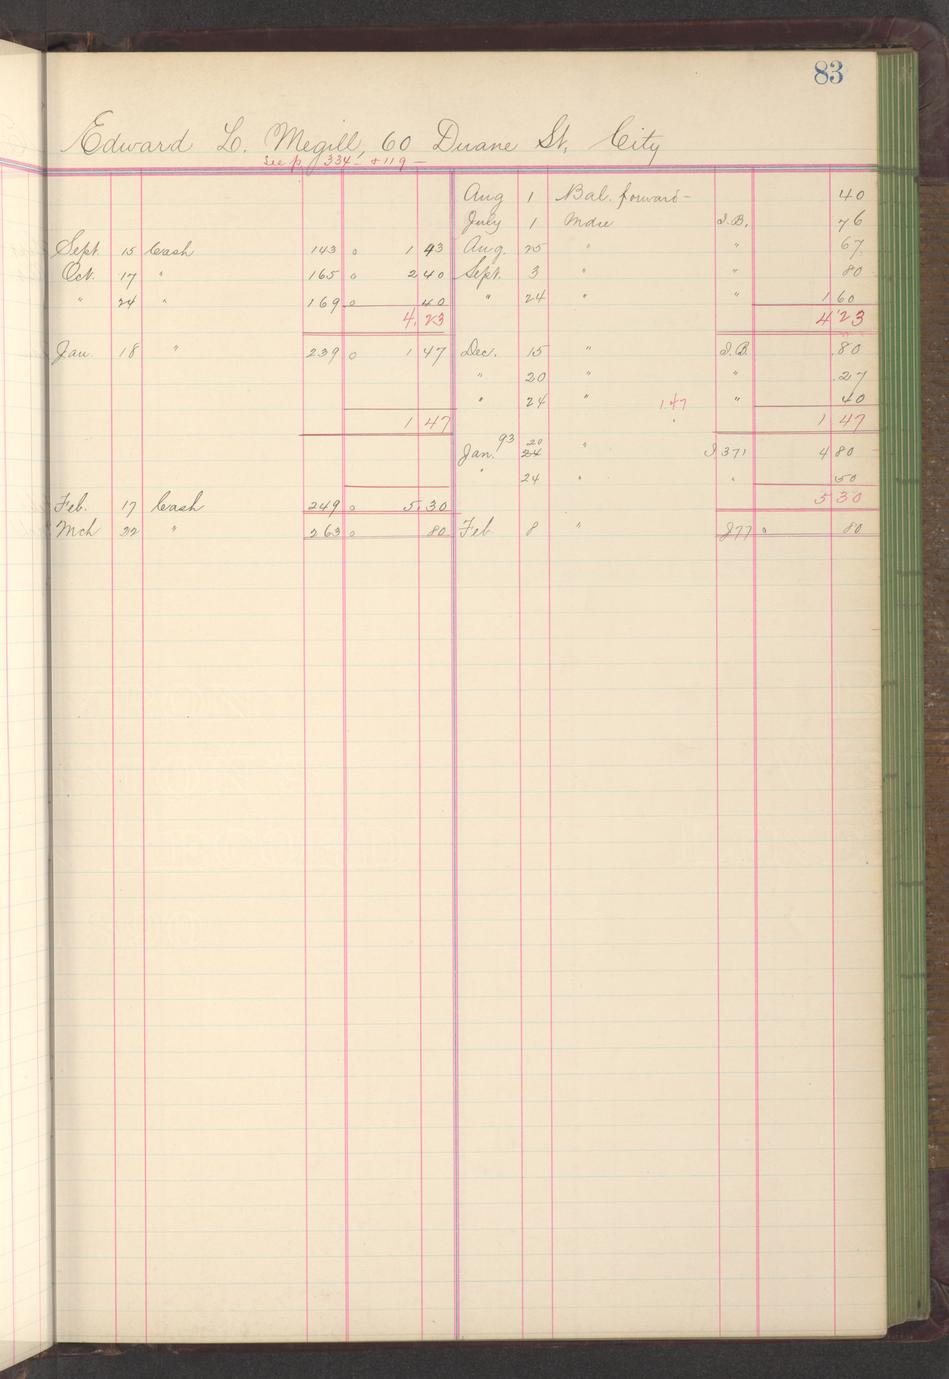 83
Edward L. Megill, 60 Duane St, City
See p. 334 - & 119 -
Aug 1 Bal. forward - 40
July 1 Mdse I.B. 76
Sept. 15 Cash 143 0 1 43 Aug. 25 " " 67
Oct. 17 " 165 0 2 40 Sept. 3 " " 80
" 24 " 169 0 40 " 24 " " 1 60
4.23 4 23
Jan. 18 " 239 0 1 47 Dec. 15 " I.B. .80
" 20 " " .27
" 24 " 1.47 " 40
1 47 1 47
Jan. 93 20 24 " I 371 4 80
" 24 " " 50
5 30
Feb. 17 Cash 249 0 5.30
Mch 22 " 263 0 80 Feb. 8 " J77 0 80